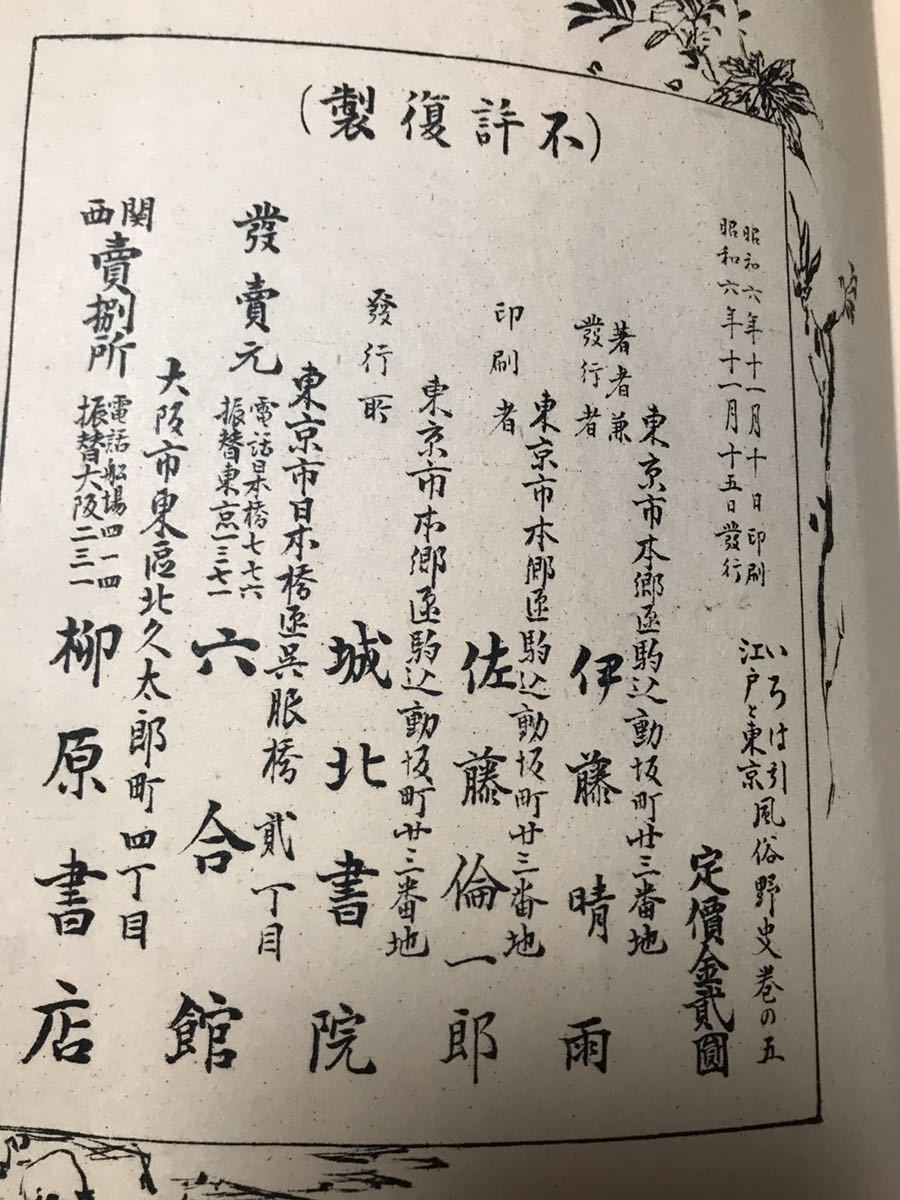 (不許復製)
昭和六年十一月十日印刷
昭和六年十一月十五日發行
いろは引
江戸と東京
風俗野史巻の五
定價金貳圓
著者兼
發行者
東京市本郷區駒込動坂町廿三番地
伊藤晴雨
印刷者
東京市本郷區駒込動坂町廿三番地
佐藤倫一郎
發行所
東京市本郷區駒込動坂町廿三番地
城北書院
發賣元
東京市日本橋區呉服橋貳丁目
電話日本橋七七六
振替東京一三七一
六合館
関西
賣捌所
大阪市東區北久太郎町四丁目
電話船場四一四
振替大阪二三一
柳原書店